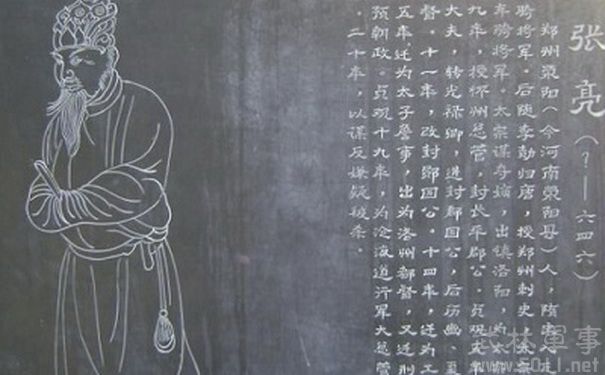 张亮(?——六四六)
郑州荥阳(今河南荥阳县)人,隋末
骑将军。后随李勣归唐,授郑州刺史。太宗
车骑将军。太宗谋夺嫡,出镇洛阳,为太
九年,授怀州总管,封长平郡公。贞观五年
大夫,转光禄卿,进封鄅国公,后历幽、夏
督。十一年,改封郧国公。十四年,迁为工
五年,迁为太子詹事,出为洛州都督,又迁刑
预朝政。贞观十九年,为沧海道行军大总管
。二十年,以谋反嫌疑被杀。
林軍事
www.5011.net